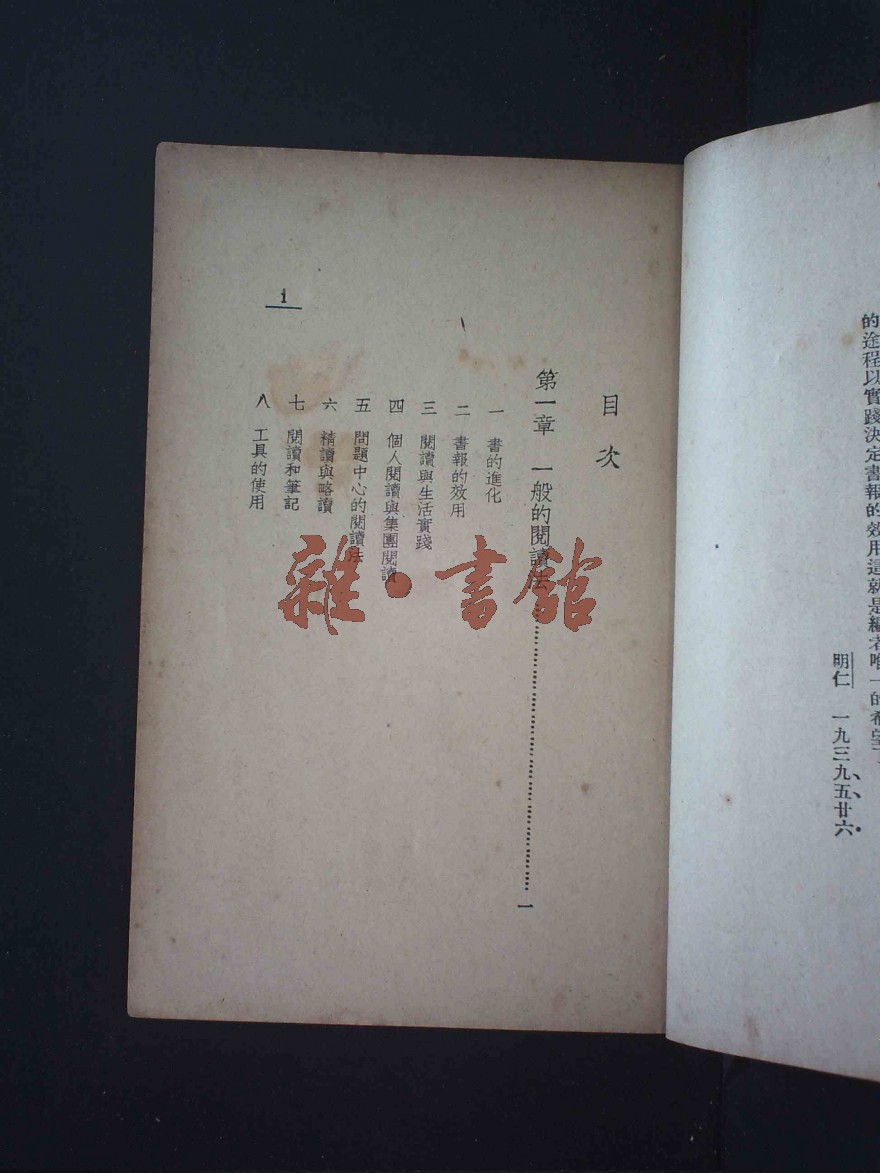 的途程以實踐決定書報的效用這就是編者唯一的希望了
明仁 一九三九、五、廿六.
目次
第一章 一般的閱讀法……一
一 書的進化
二 書報的效用
三 閱讀與生活實踐
四 個人閱讀與集團閱讀
五 問題中心的閱讀法
六 精讀與略讀
七 閱讀和筆記
八 工具的使用
1
雜·書館